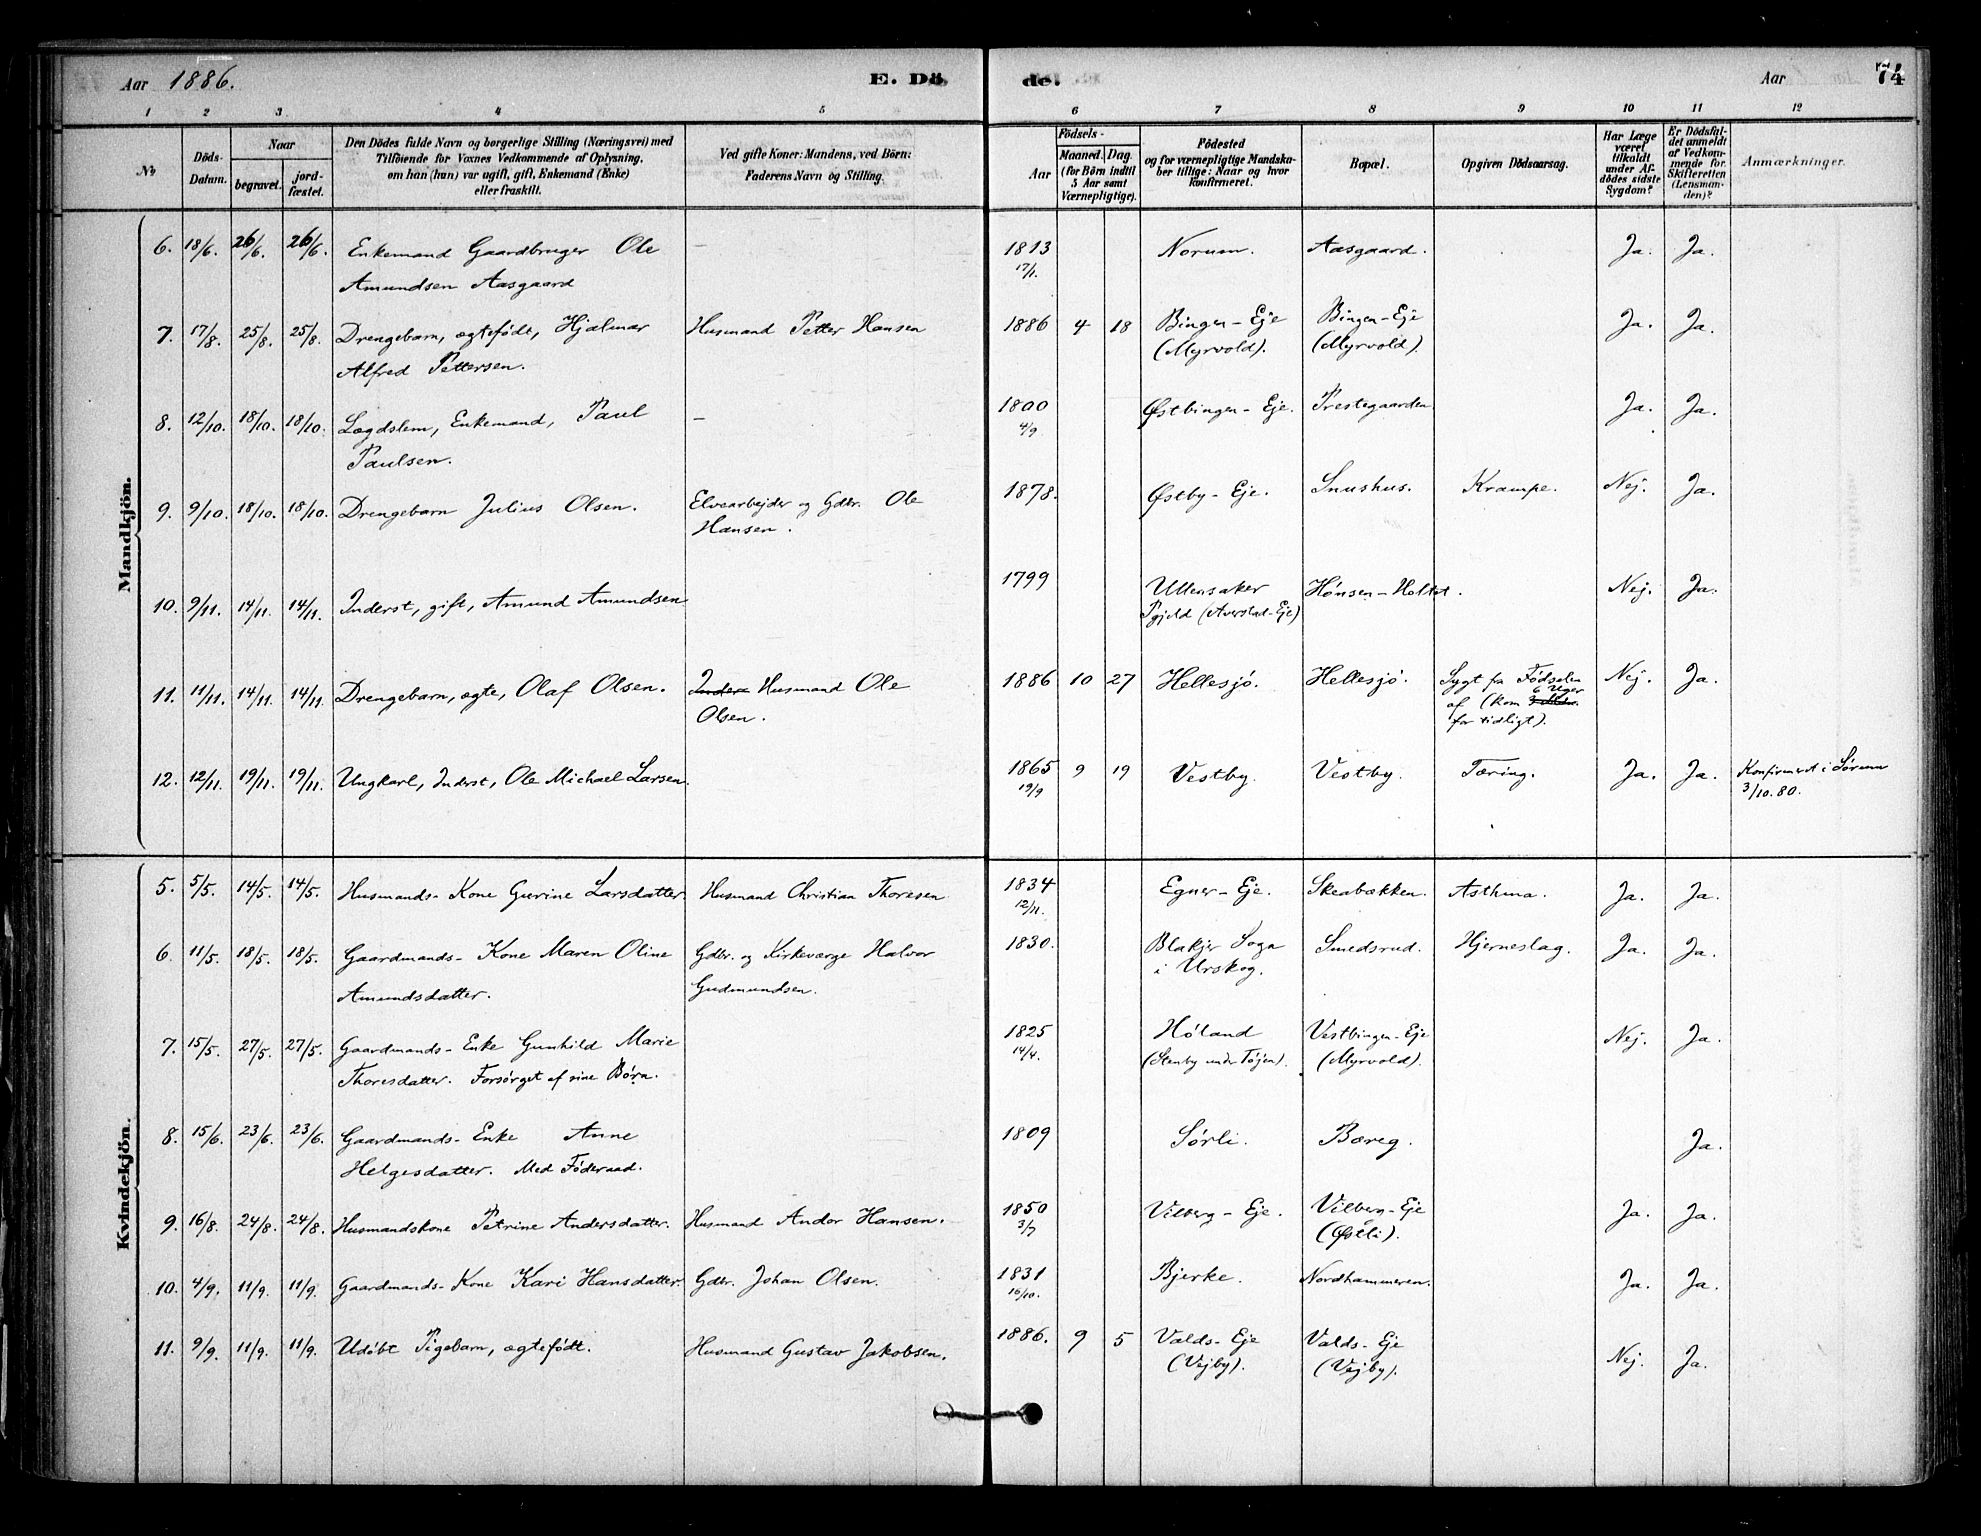 Aar 1886.
E. Dö
de.
Aar
74
1 2 3 4 5 6 7 8 9 10 11 12
No
Döds-Datum.
Naar
begravet.
jord-fæstet.
Den Dödes fulde Navn og borgerlige Stilling (Næringsvei) med
Tilföiende for Voxnes Vedkommende af Oplysning,
om han (hun) var ugift, gift, Enkemand (Enke)
eller fraskilt.
Ved gifte Koner: Mandens, ved Börn:
Faderens Navn og Stilling.
Födsels-
Aar
Maaned. Dag.
(for Börn indtil
5 Aar samt
Værnepligtige).
Födested
og for værnepligtige Mandska-
ber tillige: Naar og hvor
konfirmeret.
Bopæl.
Opgiven Dödsaarsag.
Har Læge
været
tilkaldt
under Af-
dödes sidste
Sygdom?
Er Dödsfal-
det anmeldt
af Vedkom-
mende for
Skifteretten
(Lensman-
den)?
Anmærkninger.
Mandkjön.
6. 18/6. 26/6. 26/6. Enkemand Gaardbruger Ole — 1813 Norum. Aasgaard. Ja. Ja.
17/1.
Amundsen Aasgaard
7. 17/8. 25/8. 25/8. Drengebarn, ægtefödt, Hjalmar Husmand Petter Hansen 1886 4 18 Bingen-Eje Bingen-Eje Ja. Ja.
(Myrvold). (Myrvold).
Alfred Pettersen.
8. 12/10. 18/10. 18/10. Lægdslem, Enkemand, Paul — 1800 Østbingen-Eje. Prestegaarden. Ja. Ja.
4/9.
Paulsen.
9. 9/10. 18/10. 18/10. Drengebarn Julius Olsen. Elvearbejder og Gdbr. Ole 1878. Østby-Eje. Snushus. Krampe. Nej. Ja.
Hansen.
10. 9/11. 14/11. 14/11. Inderst, gift, Amund Amundsen 1799 Ullensaker Hónsen-Holtet. Nej. Ja.
Pgjeld (Averstad-Eje)
11. 11/11. 14/11. 14/11. Drengebarn, ægte, Olaf Olsen. Inders Husmand Ole 1886 10 27 Hellesjó. Hellesjó. Sygt fra Födselen Nej. Ja.
6 Uger
Olsen. af (kom
for tidligt).
12. 12/11. 19/11. 19/11. Ungkarl, Inderst, Ole Michael Larsen. 1865 9 19 Vestby. Vestby. Tæring. Ja. Ja. Konfirmeret i Sórum
19/9 3/10.80.
Kvindekjön.
5. 5/5. 14/5. 14/5. Husmands-Kone Gurine Larsdatter. Husmand Christian Thoresen 1834 Egner-Eje. Skeabækken. Asthma. Ja. Ja.
12/11.
6. 11/5. 18/5. 18/5. Gaardmands-Kone Maren Oline Gdbr. og Kirkeværge Halvor 1830. Blakjer Sogn Smedsrud. Hjerneslag. Ja. Ja.
i Urskog.
Amundsdatter. Gudmundsen.
7. 15/5. 27/5. 27/5. Gaardmands-Enke Gunhild Marie 1825 Hóland Vestbingen-Eje Nej. Ja.
14/4. (Stenby under Tójen). (Myrvold).
Thoresdatter. Forsórget af sine Börn.
8. 15/6. 23/6. 23/6. Gaardmands-Enke Anne 1809 Sórli. Bæreg. Ja.
Helgesdatter. Med Föderaad.
9. 16/8. 24/8. 24/8. Husmandskone Petrine Andersdatter. Husmand Andor Hansen. 1850 Vilberg-Eje. Vilberg-Eje Ja. Ja.
3/7 (Østli).
10. 4/9. 11/9. 11/9. Gaardmands-Kone Kari Hansdatter. Gdbr. Johan Olsen. 1831 Bjerke. Nordhammeren. Ja. Ja.
16/10.
11. 9/9. 11/9. 11/9. Udóbt Pigebarn, ægtefódt. Husmand Gustav Jakobsen. 1886. 9 5 Valds-Eje Valds-Eje Nej. Ja.
(Vejby). (Vejby).